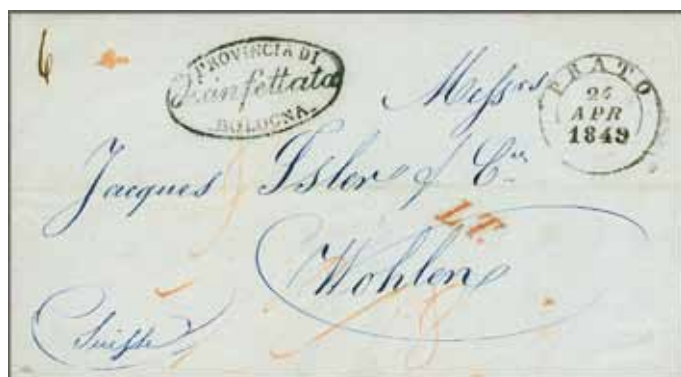 6
PROVINCIA DI
Disinfettata
BOLOGNA.
PRATO
24
APR
1849
Messrs
Jacques Isler & Cie
L.T.
Wohlen
Suisse